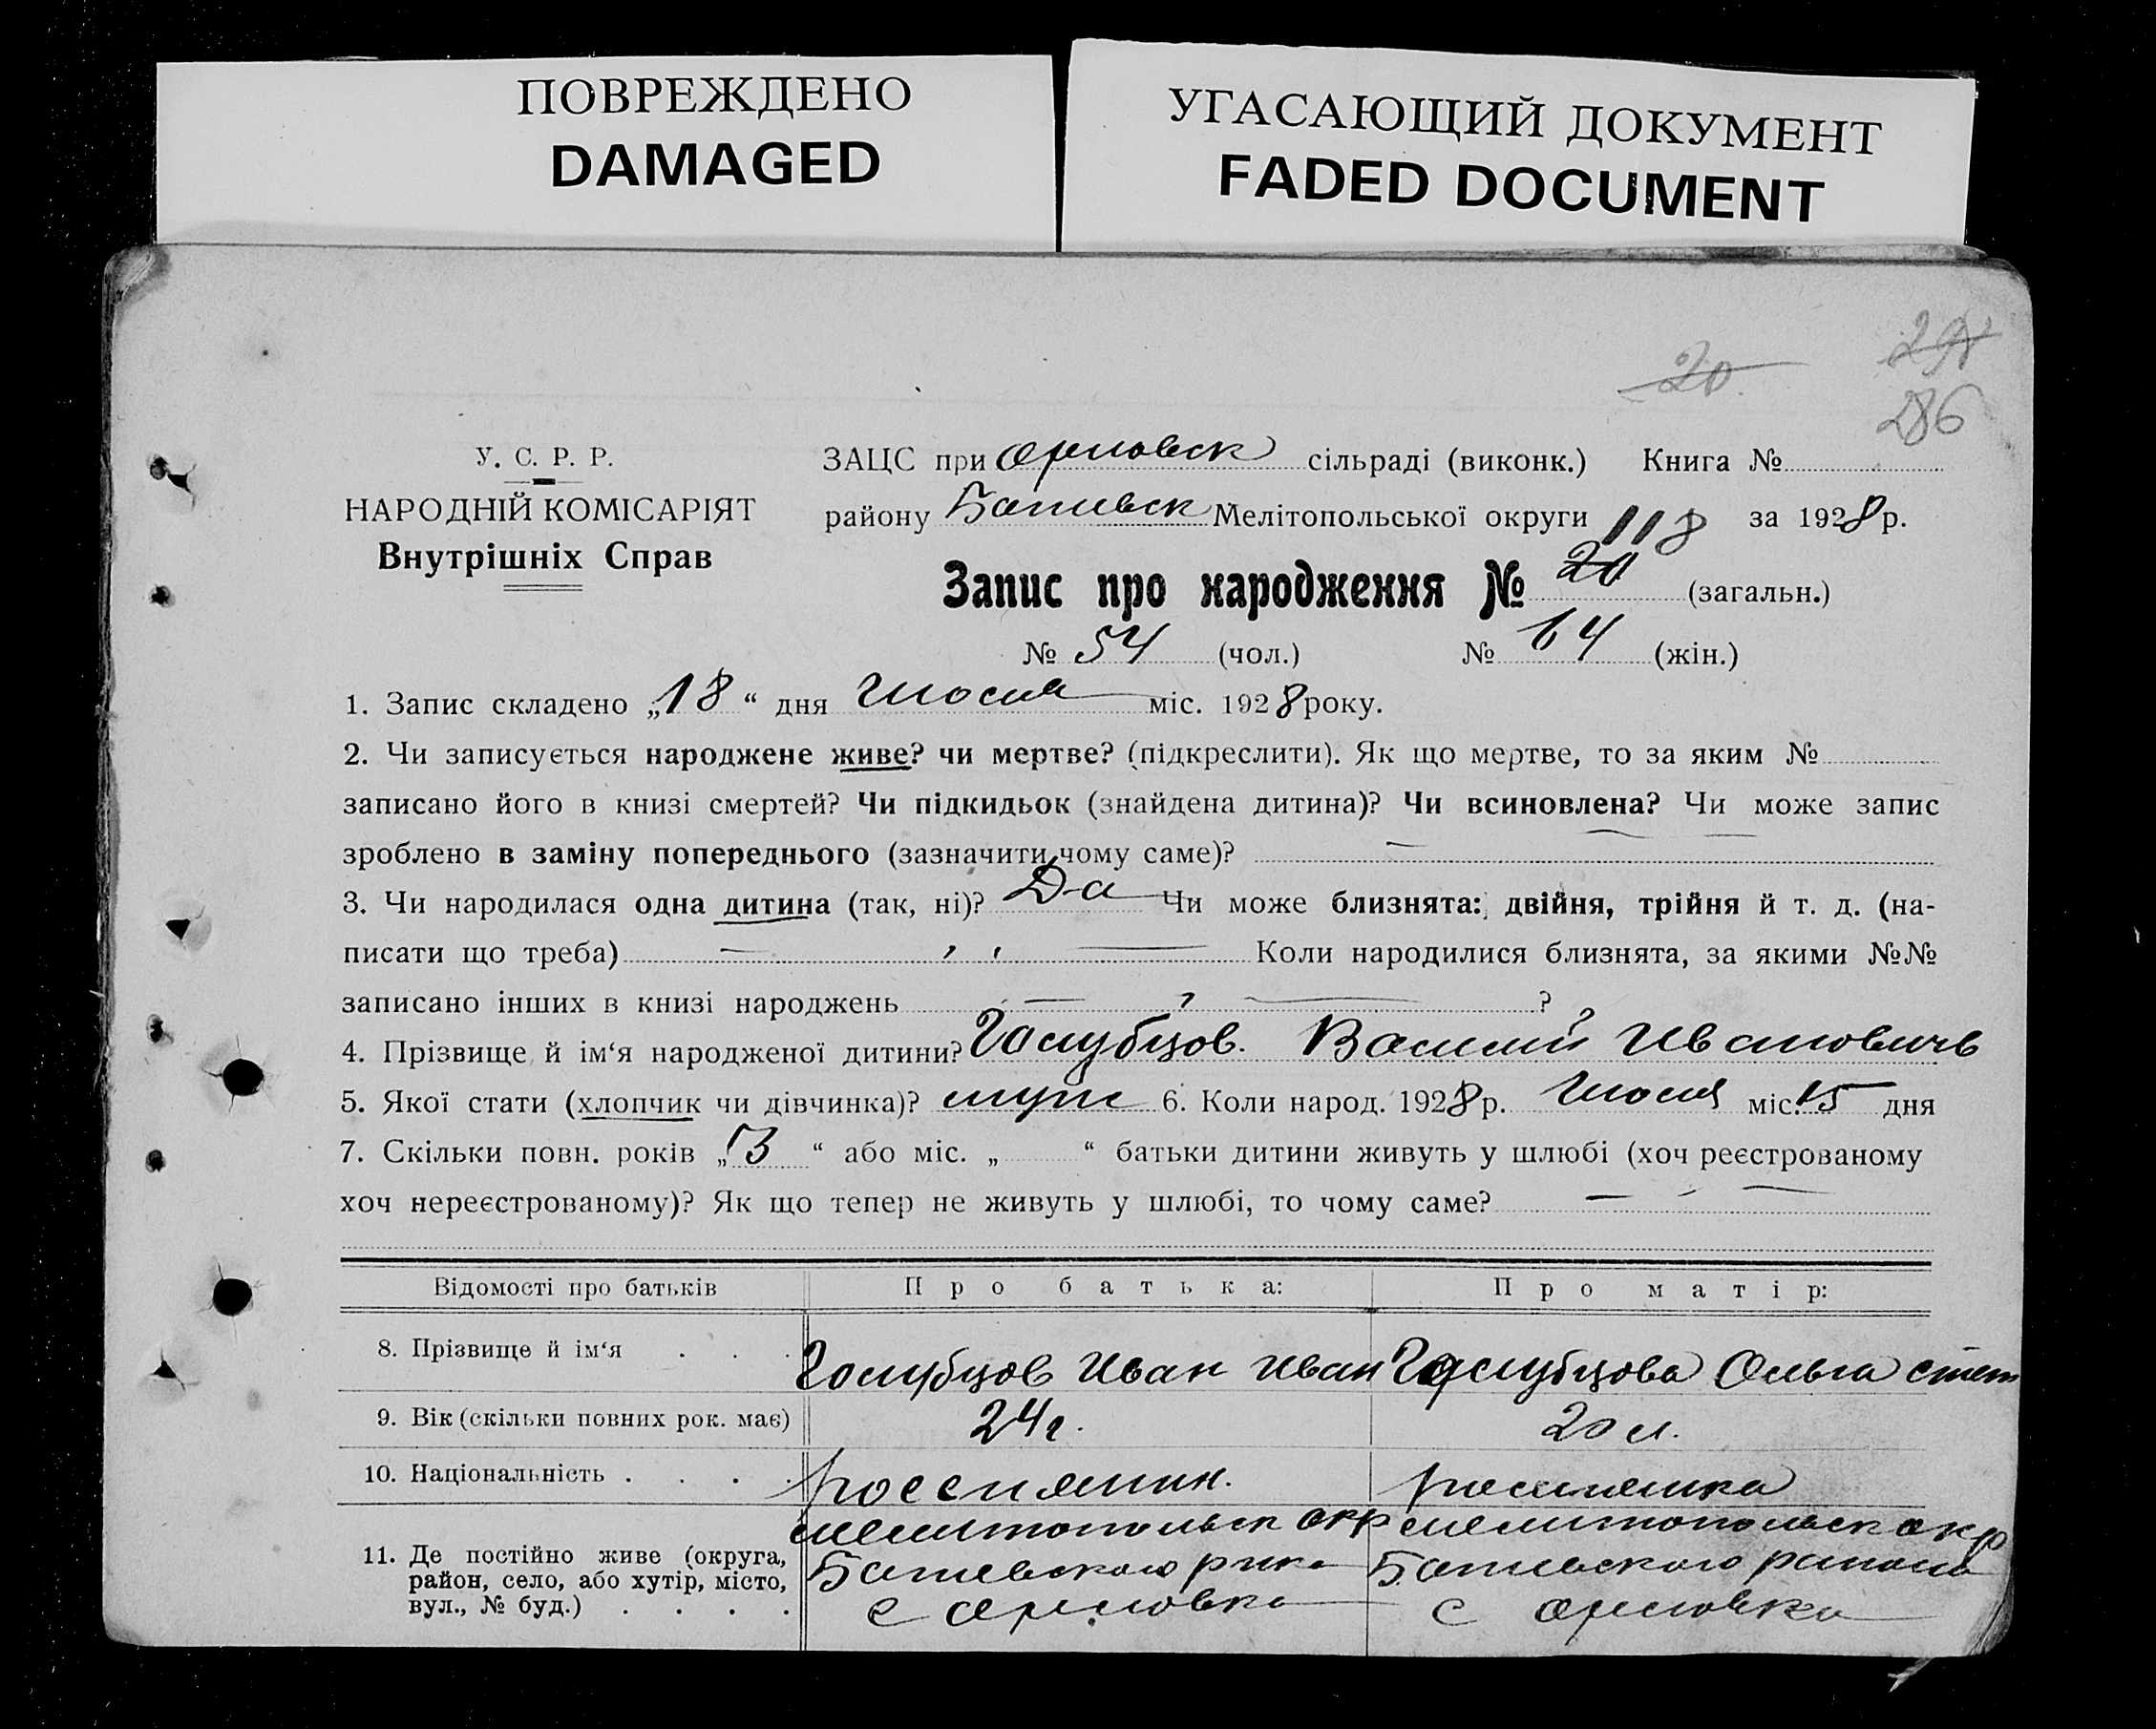 ПОВРЕЖДЕНО
DAMAGED
УГАСАЮЩИЙ ДОКУМЕНТ
FADED DOCUMENT
20
286
У. С. Р. Р.
НАРОДНІЙ КОМІСАРІЯТ
Внутрішніх Справ
ЗАЦС при Орловск сільраді (виконк.) Книга №
району Мелітопольської округи 118 за 1928 р.
Запис про народження № 20 (загальн.)
№ 54 (чол.) № 64 (жін.)
1. Запис складено „18“ дня Июля міс. 1928 року.
2. Чи записується народжене живе? чи мертве? (підкреслити). Як що мертве, то за яким №
записано його в книзі смертей? Чи підкидьок (знайдена дитина)? Чи всиновлена? Чи може запис
зроблено в заміну попереднього (зазначити чому саме)? —
3. Чи народилася одна дитина (так, ні)? Да Чи може близнята: двійня, трійня й т. д. (на-
писати що треба) — Коли народилися близнята, за якими №№
записано інших в книзі народжень — ?
4. Прізвище й ім‘я народженої дитини? Голубцов. Василий Ивановичь
5. Якої стати (хлопчик чи дівчинка)? муж 6. Коли народ. 1928 р. Июля міс. 15 дня
7. Скільки повн. років „3“ або міс. „ “ батьки дитини живуть у шлюбі (хоч реєстрованому
хоч нереєстрованому)? Як що тепер не живуть у шлюбі, то чому саме? —
Відомості про батьків Про батька: Про матір:
8. Прізвище й ім‘я . . . Голубцов Иван Иван Голубцова Ольга Степ
9. Вік (скільки повних рок. має) 24 г. 20 л.
10. Національність . . . . россиянин. россиянка
11. Де постійно живе (округа, район, село, або хутір, місто, вул., № буд.) . . . .
Мелитопольск окр
с Орловка
Мелитопольск окр
района
с Орловка